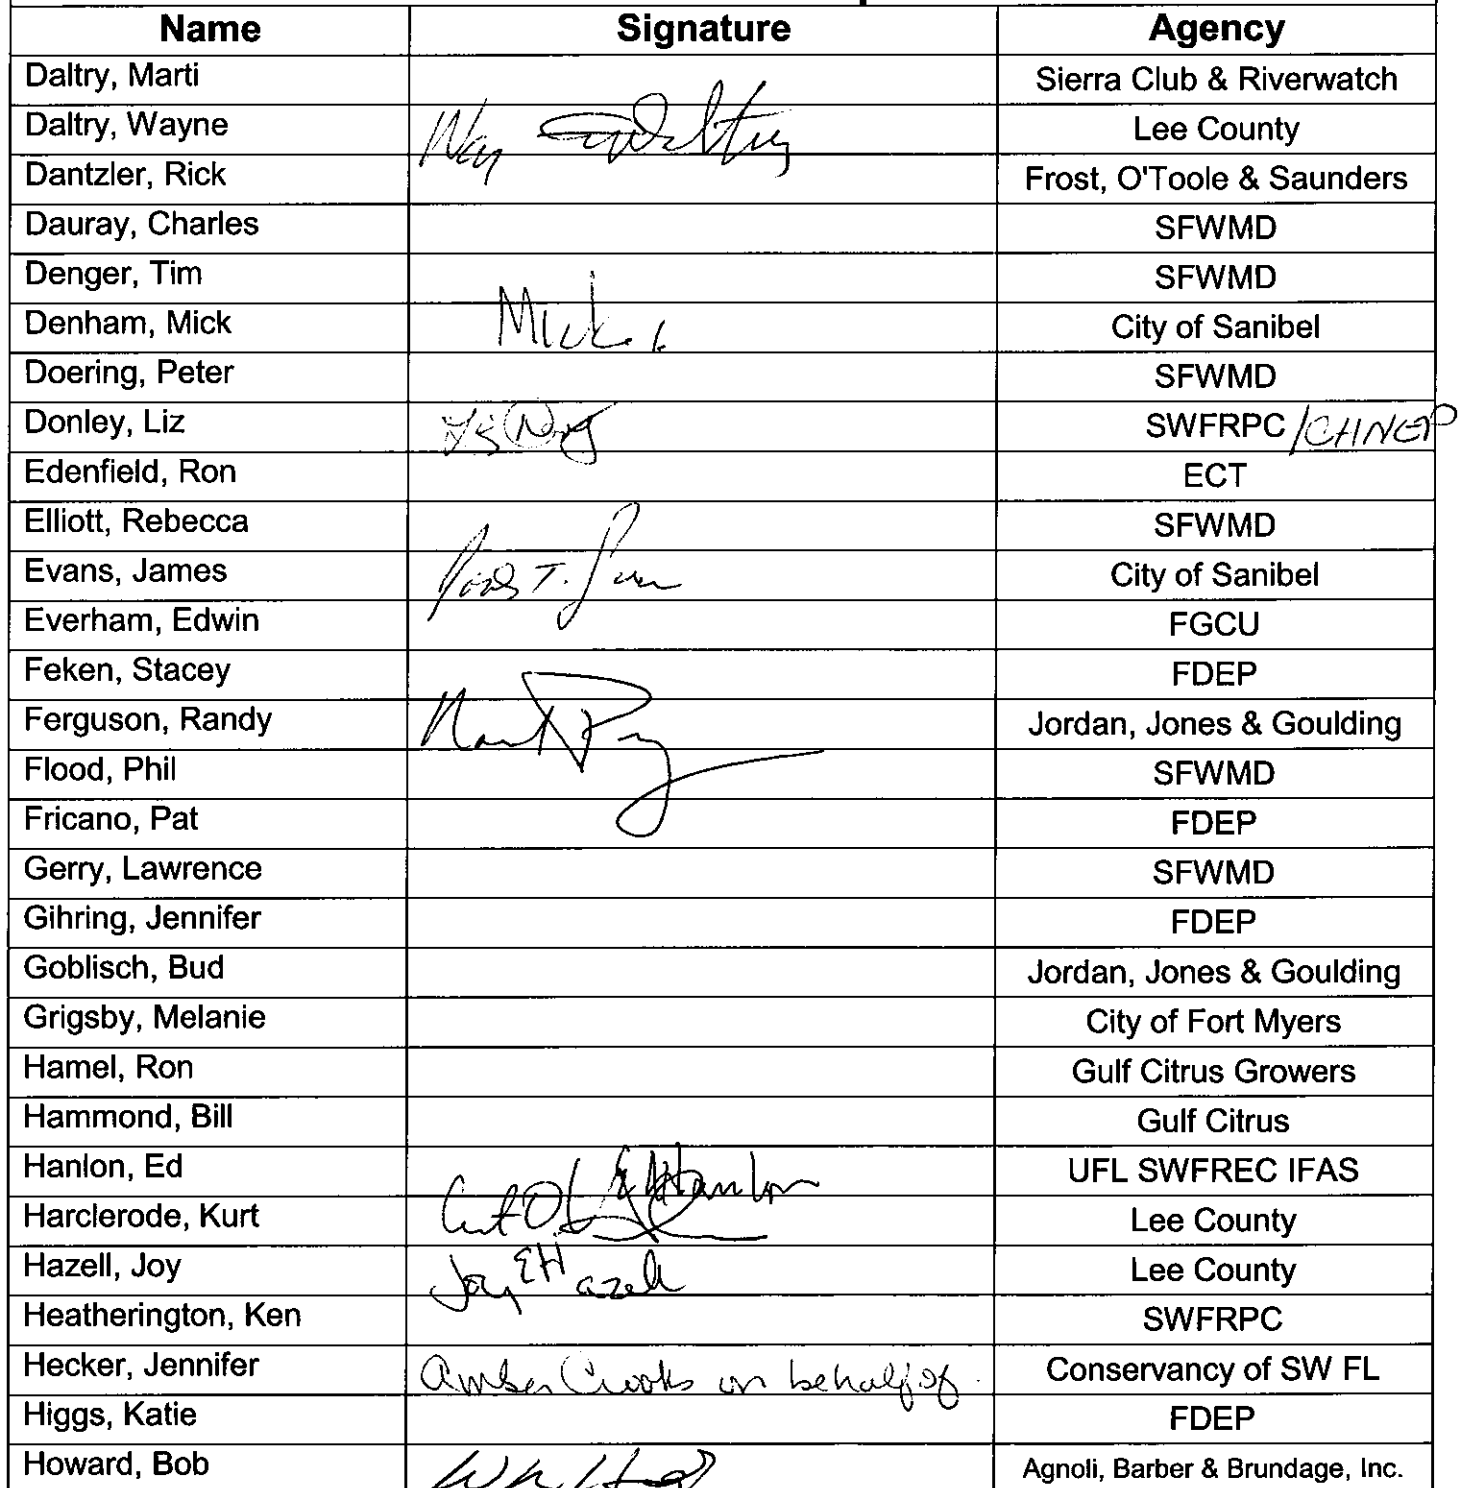 Name Signature Agency
Daltry, Marti Sierra Club & Riverwatch
Daltry, Wayne Lee County
Dantzler, Rick Frost, O'Toole & Saunders
Dauray, Charles SFWMD
Denger, Tim SFWMD
Denham, Mick Mick City of Sanibel
Doering, Peter SFWMD
Donley, Liz SWFRPC /CHNEP
Edenfield, Ron ECT
Elliott, Rebecca SFWMD
Evans, James City of Sanibel
Everham, Edwin FGCU
Feken, Stacey FDEP
Ferguson, Randy Jordan, Jones & Goulding
Flood, Phil SFWMD
Fricano, Pat FDEP
Gerry, Lawrence SFWMD
Gihring, Jennifer FDEP
Goblisch, Bud Jordan, Jones & Goulding
Grigsby, Melanie City of Fort Myers
Hamel, Ron Gulf Citrus Growers
Hammond, Bill Gulf Citrus
Hanlon, Ed EAHanlon UFL SWFREC IFAS
Harclerode, Kurt Lee County
Hazell, Joy Joy E Hazell Lee County
Heatherington, Ken SWFRPC
Hecker, Jennifer Amber Crooks on behalf of Conservancy of SW FL
Higgs, Katie FDEP
Howard, Bob Agnoli, Barber & Brundage, Inc.